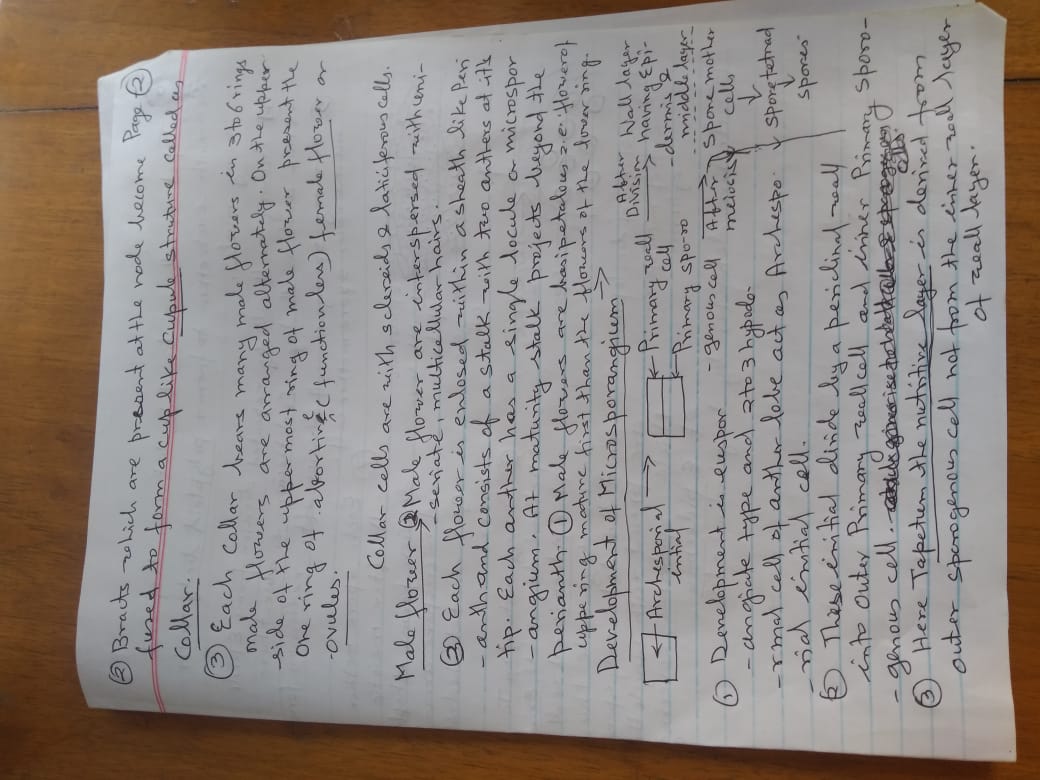 Page (2)
(2) Bracts which are present at the node become
fused to form a cup like cupule struture called as
Collar.
(3) Each Collar bears many male flowers in 3 to 6 rings
male flowers are arranged alternately. On the upper
-side of the uppermost ring of male flower present the
one ring of abortive (functionless) female flower or
-ovules.
Collar cells are with sclereids & laticiferous cells.
Male flower → (1) Male flower are interspersed with uni-
-seriate, multicellular hairs.
(2) Each flower is enclosed within a sheath like peri
-anth and consists of a stalk with two anthers at its
tip. Each anther has a single locule or microspor
-angium. At maturity stalk projects beyond the
perianth. (1) Male flowers are basipetalous i.e. flower of
uppering mature first than the flowers of the lower ring.
Development of Microsporangium →
Archesporial initial → Primary wall cell After Division → Wall layer having Epi-
-dermis & middle layer
Primary sporo
-genous cell After meiocis → spore mother cells
↓
spore tetrad
↓
spores
(1) Development is euspor
-angiate type and 2 to 3 hypode-
-rmal cell of anther lobe act as Archespo
-rial initial cell.
(2) These initial divide by a periclinal wall
into outer Primary wall cell and inner Primary sporo-
-genous cell.
(3) Here Tapetum the nutritive layer is derived from
outer sporogenous cell not from the inner wall layer
of wall layer.